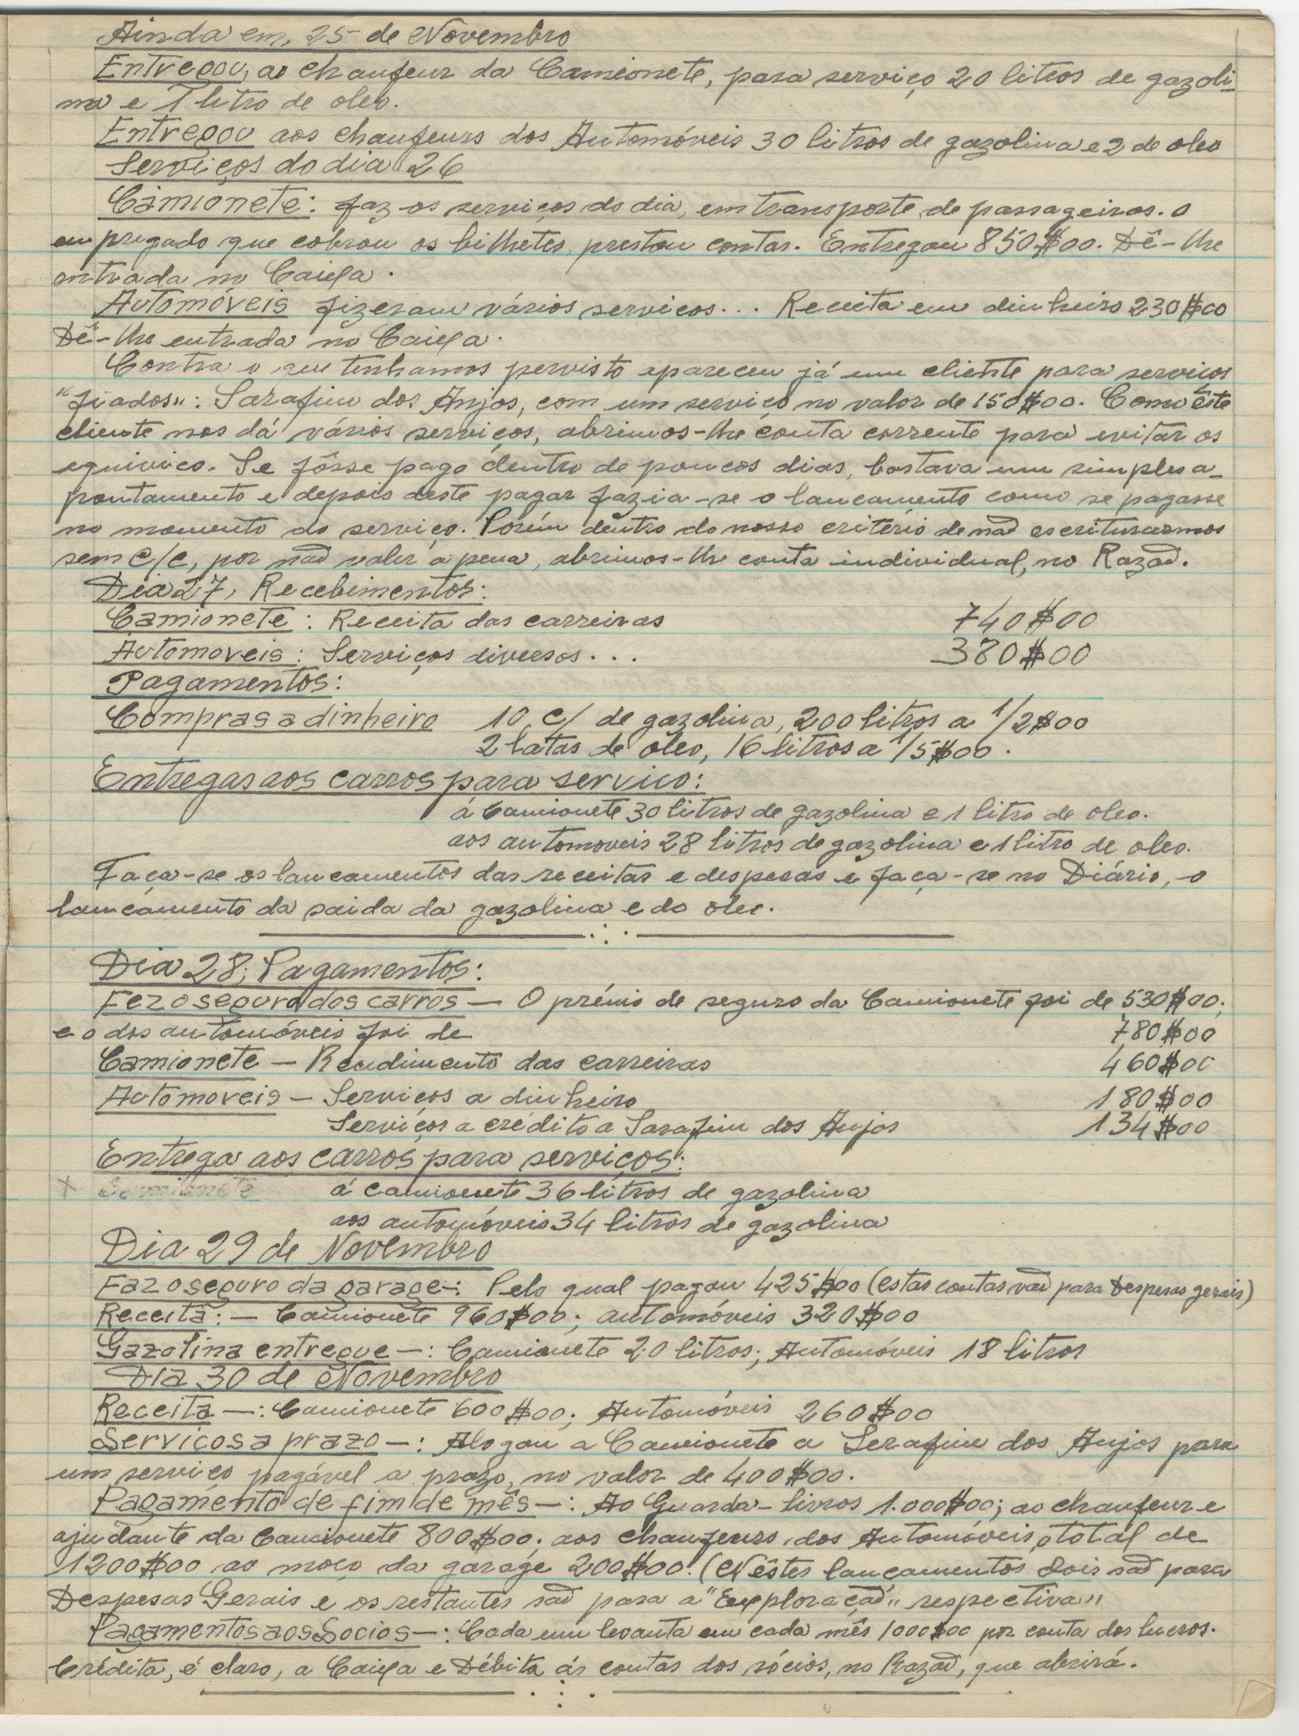 Ainda em, 25 de Novembro
Entregou, ao chaufeur da Camionete, para serviço 20 litros de gazoli-
na e 1 litro de oleo.
Entregou aos chaufeurs dos Automóveis 30 litros de gazolina e 2 de oleo
Serviços do dia 26
Camionete: faz os serviços do dia, em transporte de passageiros. O
empregado que cobrou os bilhetes, prestou contas. Entregou 850$00. Dê-lhe
entrada no Caixa.
Automóveis fizeram vários serviços... Receita em dinheiro 230$00
Dê-lhe entrada no Caixa.
Contra o que tenhamos pervisto apareceu já um cliente para serviços
"fiados": Sarafim dos Anjos, com um serviço no valor de 150$00. Como êste
cliente nos dá vários serviços, abrimos-lhe conta corrente para evitar os
equivico. Se fôsse pago dentro de poucos dias, bastava um simples a-
pontamento e depois deste pagar fazia-se o lancamento como se pagasse
no momento do serviço. Porém dentro do nosso critério de naõ escriturarmos
sem C/C, por naõ valer a pena, abrimos-lhe conta individual, no Razaõ.
Dia 27, Recebimentos:
Camionete: Receita das carreiras 740$00
Automoveis: Serviços diversos... 380$00
Pagamentos:
Compras a dinheiro 10 c/ de gazolina, 200 litros a 1/2$00
2 latas de oleo, 16 litros a 1/5$00.
Entregas aos carros para servico:
á Camionete 30 litros de gazolina e 1 litro de oleo.
aos automoveis 28 litros de gazolina e 1 litro de oleo.
Faça-se os lancamentos das receitas e despesas e faça-se no Diário, o
lançamento da saida da gazolina e do oleo.
Dia 28, Pagamentos:
Fez o seguro dos carros — O prémio de seguro da Camionete foi de 530$00;
e o dos automóveis foi de 780$00
Camionete — Rendimento das carreiras 460$00
Automoveis — Servicos a dinheiro 180$00
Serviços a crédito a Sarafim dos Anjos 134$00
Entrega aos carros para serviços:
x á camionete 36 litros de gazolina
aos automóveis 34 litros de gazolina
Dia 29 de Novembro
Faz o seguro da garage—: Pelo qual pagou 425$00 (estas contas vaõ para Despesas gerais)
Receita: — Camionete 960$00; automóveis 320$00
Gazolina entregue—: Camionete 20 litros; Automóveis 18 litros
Dia 30 de Novembro
Receita —: Camionete 600$00; Automóveis 260$00
Serviços a prazo —: Alogou a Camionete a Serafim dos Anjos para
um serviço pagável a prazo, no valor de 400$00.
Pagamento de fim de mês —: Ao Guarda-livros 1.000$00; ao chaufeur e
ajudante da Camionete 800$00; aos chaufeurs dos Automóveis, o total de
1200$00 ao moço da garage 200$00. (Nêstes lançamentos dois saõ para
Despesas Gerais e os restantes saõ para a "Exploraçaõ" respectiva"
Pagamentos aos Socios —: Cada um levanta em cada mês 1000$00 por conta dos lucros.
Crédita, é claro, a Caixa e Débita ás contas dos sócios, no Razaõ, que abrirá.